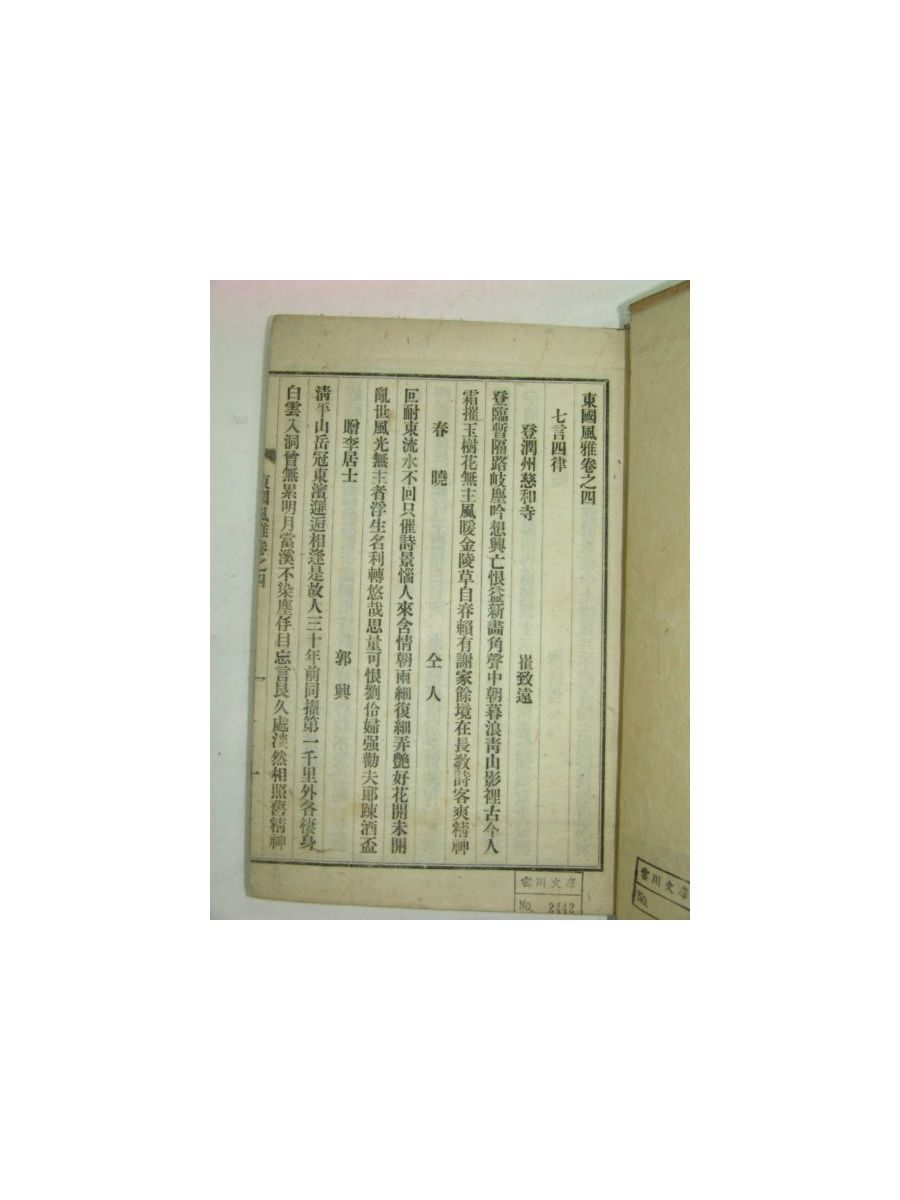 東國風雅卷之四
七言四律
登潤州慈和寺 崔致遠
登臨暫隔路岐塵吟想興亡恨益新畵角聲中朝暮浪青山影裡古今人
霜摧玉樹花無主風暖金陵草自春賴有謝家餘境在長敎詩客爽精神
春曉 仝人
叵耐東流水不回只催詩景惱人來含情朝雨細復細弄艶好花開未開
亂世風光無主者浮生名利轉悠哉思量可恨劉伶婦强勸夫郞踈酒盃
贈李居士 郭興
淸平山岳冠東濱邂逅相逢是故人三十年前同擢第一千里外各棲身
白雲入洞曾無累明月當溪不染塵 目忘言良久處淡然相照舊精神
東國風雅卷之四 一
雲川文庫
No. 2442
雲川文庫
No.